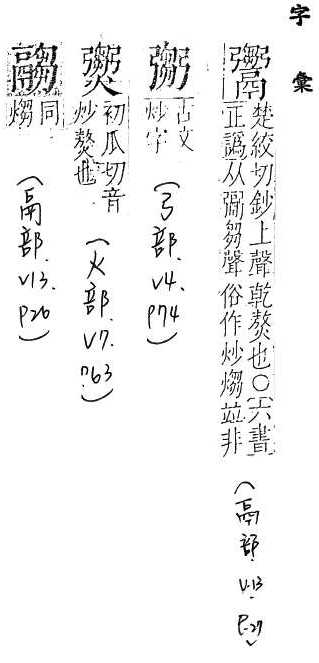 字彙
楚絞切鈔上聲乾熬也○六書
正譌从䰜芻聲俗作炒煼並非
(鬲部.V.13.P.27)
古文
炒字
(弓部.V4.P74)
初瓜切音
炒熬也
(火部.V7.P63)
䰞
同
煼
(鬲部.V13.P26)